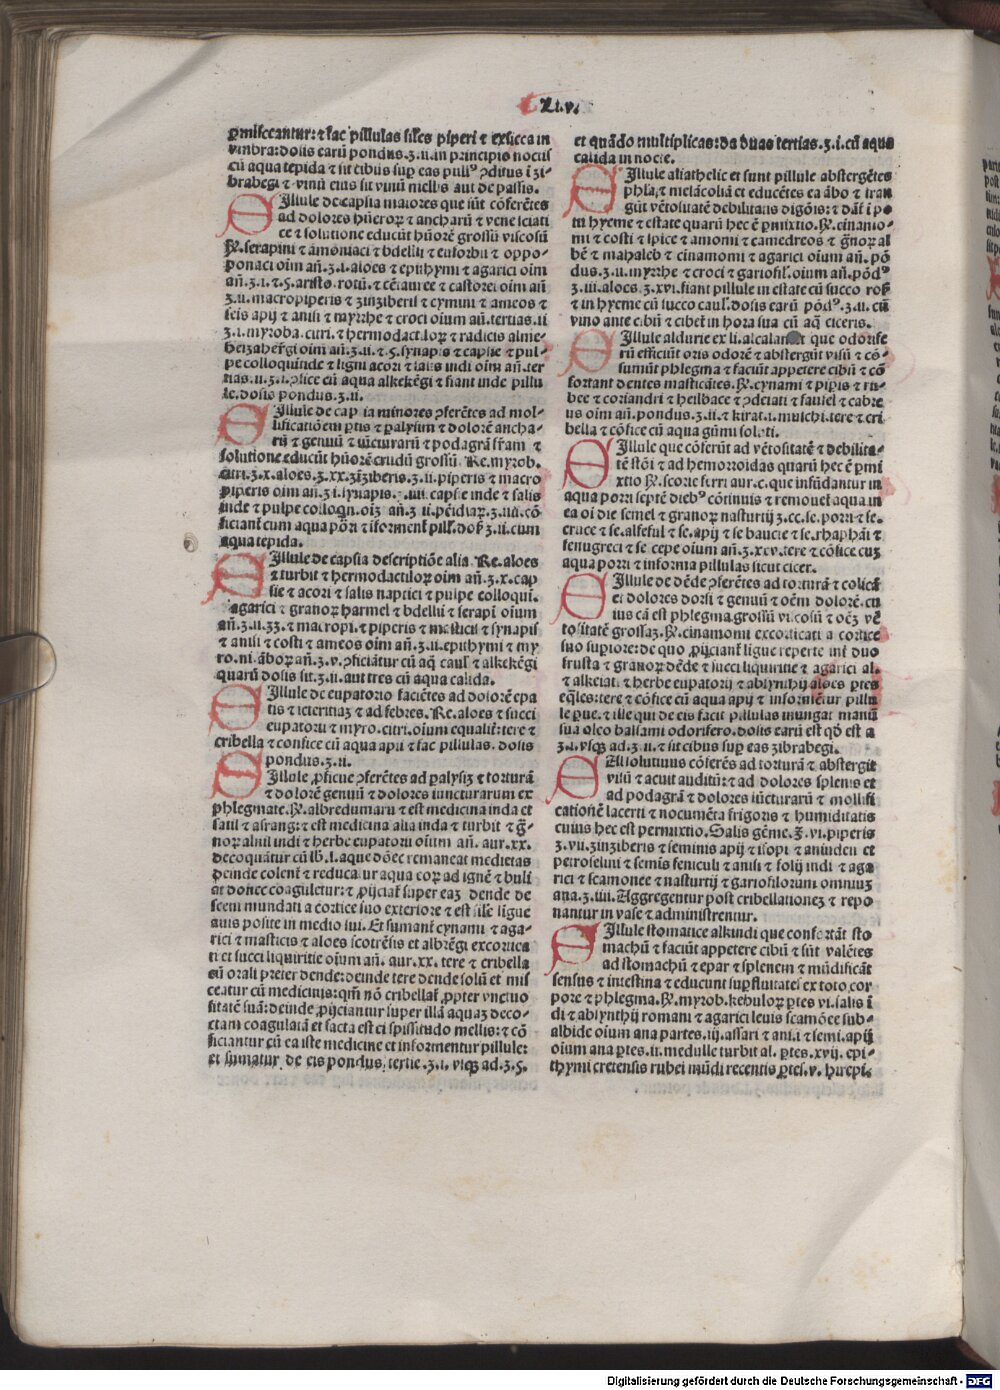 Li.v.
ꝑmiſceantur: ⁊ fac pillulas ſiles piperi ⁊ exſicca in
vmbra: doſis earū pondus .ʒ.ii. in principio noctis
cū aqua tepida ⁊ ſit cibus ſuꝑ eas pull⁹ ꝯditus ī ʒi⸗
brabegi ⁊ vinū eius ſit vinū mellis aut de paſſis.
Pillule de capſia maiores que ſūt cōferētes
ad dolores hūeroꝝ ⁊ ancharū ⁊ vene ſciati
ce ⁊ ſolutione educūt hūorē groſſū viſcoſū
℞. ſerapini ⁊ armoniaci ⁊ bdellii ⁊ euforbii ⁊ oppo⸗
ponaci oim añ.ʒ.i. aloes ⁊ epithymi ⁊ agarici oim
añ.ʒ.i.⁊.ʒ. ariſto. rotū. ⁊ cētauree ⁊ caſtorei oim añ
ʒ.ii. macropiperis ⁊ zinziberis ⁊ cymini ⁊ ameos ⁊
ſeis apij ⁊ aniſi ⁊ myrrhe ⁊ croci oium añ. tertias .ii
ʒ.i. myroba. citri. ⁊ hermodactiloꝝ ⁊ radicis almie⸗
heizahergi oim añ.ʒ.ii.⁊.ʒ. ſynapis ⁊ capſie ⁊ pul⸗
pe colloquinde ⁊ ligni acori ⁊ ſalis indi oim añ. ter
tias .ii.ʒ.i. ꝯfice cū aqua alkekēgi ⁊ fiant inde pillu
le. doſis pondus .ʒ.ii.
Pillule de capſia minores ꝯferētes ad mol⸗
lificationem ꝑtis ⁊ ꝑalyſim ⁊ dolorē ancha⸗
rū ⁊ genuū ⁊ iūcturarū ⁊ podagrā frām ⁊
ſolutione educūt hūorē crudū groſſū. Re. myrob.
citri.ʒ.x. aloes.ʒ.xx. zīziberis.ʒ.ii. piperis ⁊ macro
piperis oim añ.ʒ.i. ſynapis. .iiii. capſie inde ⁊ ſalis
inde ⁊ pulpe colloqn. oiʒ añ.ʒ.ii. pēidiaꝝ.ʒ.iiii. cō⸗
ficiant̄ cum aqua porri ⁊ iforment̄ pill̄. doſ̄ ʒ.ii. cum
aqua tepida.
Pillule de capſia deſcriptiōe alia. Re. aloes
⁊ turbit ⁊ hermodactiloꝝ oim añ.ʒ.x. cap
ſie ⁊ acori ⁊ ſalis naptici ⁊ pulpe colloqui.
agarici ⁊ granoꝝ harmel ⁊ bdellii ⁊ ſerapi oium
añ.ʒ.ii.ʒʒ. ⁊ macropi. ⁊ piperis ⁊ maſticis ⁊ ſynapis
⁊ aniſi ⁊ coſti ⁊ ameos oim añ.ʒ.ii. epithymi ⁊ my
ro. ni. āboꝝ añ.ʒ.v. ꝯficiātur cū aq̄ caul̄ ⁊ alkekēgi
quarū doſis ſit.ʒ.ii. aut tres cū aqua calida.
Pillule de eupatorio faciētes ad dolorē epa
tis ⁊ ictericiaʒ ⁊ ad febres. Re. aloes ⁊ ſucci
eupatorii ⁊ myro. citri. oium equalit̄: tere ⁊
cribella ⁊ confice cū aqua apii ⁊ fac pillulas. doſis
pondus .ʒ.ii.
Pillule ꝓficue ꝯferētes ad ꝑalyſiʒ ⁊ torturā
⁊ dolorē genuū ⁊ dolores iuncturarum ex
phlegmate. ℞. albredumaru ⁊ eſt medicina inda et
ſatil ⁊ aſrang: ⁊ eſt medicina alia inda ⁊ turbit ⁊ gr̄⸗
noꝝ alnil indi ⁊ herbe eupatorii oium añ. aur. xx.
decoquātur cū lb̄. l. aque dōec remaneat medietas
deinde colent̄ ⁊ reducat̄ur aqua eoꝝ ad ignē ⁊ buli
at donec coaguletur: ⁊ ꝓijciat̄ ſuper eaʒ dende de
ſecni mundati a cortice ſuo exteriore ⁊ eſt ſile ligue
auis poſite in medio ſui. Et ſumant̄ cynami ⁊ aga⸗
rici ⁊ maſticis ⁊ aloes ſcotrēſis et albrēgi excortica
ti et ſucci liquiritie oium añ. aur. xx. tere ⁊ cribella
cū orali preter dende: deinde tere dende ſolū et miſ
ceatur cū medicinis: qm̄ nō cribellat̄ ꝓpter vnctuo
ſitatē ſuā: deinde ꝓijciantur ſuper illā aquaʒ deco⸗
ctam coagulatā et facta eſt ei ſpiſſitudo mellis: ⁊ cō
ficiantur cū ea iſte medicine et informentur pillule:
et ſumatur de eis pondus tertie .ʒ.i. vſqꝫ ad .ʒ.ʒ.
et quādo multiplicas: da duas tertias .ʒ.i. cū aqua
calida in nocte.
Pillule aliathelic et ſunt pillule abſtergētes
phl̄a. ⁊ melācoliā et educētes ea ābo ⁊ fran
gūt vētoſitatē debilitatis digōis: ⁊ dāt̄ i po
tu hyeme ⁊ eſtate quarū hec ē ꝑmixtio. ℞. cinamo⸗
mi ⁊ coſti ⁊ ſpice ⁊ amomi ⁊ camedreos ⁊ gr̄noꝝ al
bē ⁊ mahaleb ⁊ cinamomi ⁊ agarici oium añ. pō
dus.ʒ.ii. myrrhe ⁊ croci ⁊ gariofil̄. oium añ. pōd⁹
ʒ.iii. aloes.ʒ.xvi. fiant pillule in eſtate cū ſucco roſ̄
⁊ in hyeme cū ſucco caul̄. doſis earū pōd⁹.ʒ.ii. cū
vino ante cibū ⁊ cibet̄ in hora ſua cū aq̄ ciceris.
Pillule aldurie ex li. alcalamet que odorife
rū efficiūt oris odorē ⁊ abſtergūt viſū ⁊ cō⸗
ſumūt phlegma ⁊ faciūt appetere cibū ⁊ cō
fortant dentes maſticātes. ℞. cynami ⁊ pipis ⁊ ru⸗
bee ⁊ coriandri ⁊ heilbace ⁊ ꝯdeiati ⁊ faufel ⁊ cabre
us oim añ. pondus.ʒ.ii. ⁊ kirat. i. muſchi. tere ⁊ cri
bella ⁊ cōfice cū aqua gūmi ſoluti.
Pillule que cōferūt ad vētoſitatē ⁊ debilita⸗
tē ſtōi ⁊ ad hemorroidas quarū hec ē ꝑmi
xtio ℞. ſcorie ferri aur. c. que infūdantur in
aqua porri ſeptē dieb⁹ cōtinuis ⁊ remouet̄ aqua in
ea oi die ſemel ⁊ granoꝝ naſturtij.ʒ.cc. ſe. porri ⁊ ſe.
eruce ⁊ ſe. alfeful ⁊ ſe. apij ⁊ ſe baucie ⁊ ſe. rhaphāi ⁊
fenugreci ⁊ ſe cepe oium añ.ʒ.xxv. tere ⁊ cōfice cuʒ
aqua porri ⁊ informa pillulas ſicut cicer.
Pillule de dēde ꝯferētes ad torturā ⁊ colicā
et dolores dorſi ⁊ genuū ⁊ oēm dolorē. cu
ius cā eſt phlegma. groſſū viſcoſū ⁊ oēʒ vē
toſitatē groſſaʒ. ℞. cinamomi excorticati a cortice
ſuo ſupiore: de quo ꝓijciant̄ ligue reperte int̄ duo
fruſta ⁊ granoꝝ dēde ⁊ ſucci liquiritie ⁊ agarici al.
⁊ alkeiati ⁊ herbe eupatorij ⁊ abſynthij aloes ꝑtes
eq̄les: tere ⁊ cōfice cū aqua apij ⁊ informētur pillu
le pue. ⁊ ille qui de eis facit pillulas inungat manū
ſuā oleo balſami odorifero. doſis earū eſt qd̄ eſt a
ʒ.i. vſqꝫ ad.ʒ.ii. ⁊ ſit cibus ſuꝑ eas zibrabegi.
Pil ſolutiuus cōferēs ad torturā ⁊ abſtergit
viſū ⁊ acuit auditū: ⁊ ad dolores ſplenis et
ad podagrā ⁊ dolores iūcturarū ⁊ mollifi
cationē lacerti ⁊ nocumēta frigoris ⁊ humiditatis
cuius hec eſt permixtio. Salis gēme.ʒ.vi. piperis
ʒ.vii. zinziberis ⁊ ſeminis apij ⁊ iſopi ⁊ amiudeu et
petroſelini ⁊ ſemis feniculi ⁊ aniſi ⁊ folij indi ⁊ aga
rici ⁊ ſcamonee ⁊ naſturtij ⁊ gariofilorum omniuʒ
ana.ʒ.iiii. Aggregentur poſt cribellationeʒ ⁊ repo
nantur in vaſe ⁊ adminiſtrentur.
Pillule ſtomatice alkindi que confortāt ſto
machū ⁊ faciūt appetere cibū ⁊ ſūt valētes
ad ſtomachū ⁊ epar ⁊ ſplenem ⁊ mūdificāt
ſenſus ⁊ inteſtina ⁊ educunt ſuꝑfluitates ex toto cor
pore ⁊ phlegma. ℞. myrob. kebuloꝝ ꝑtes vi. ſalis ī
di ⁊ abſynthij romani ⁊ agarici leuis ſcamōee ſub⸗
albide oium ana partes. iij. aſſari ⁊ aniſi ⁊ ſemi. apij
oium ana ꝑtes. ii. medulle turbit al. ꝑtes. xvij. epi⸗
thymi cretenſis rubei mūdi recentis ꝑtes. v. hirepi⸗
Digitalisierung gefördert durch die Deutsche Forschungsgemeinschaft - DFG